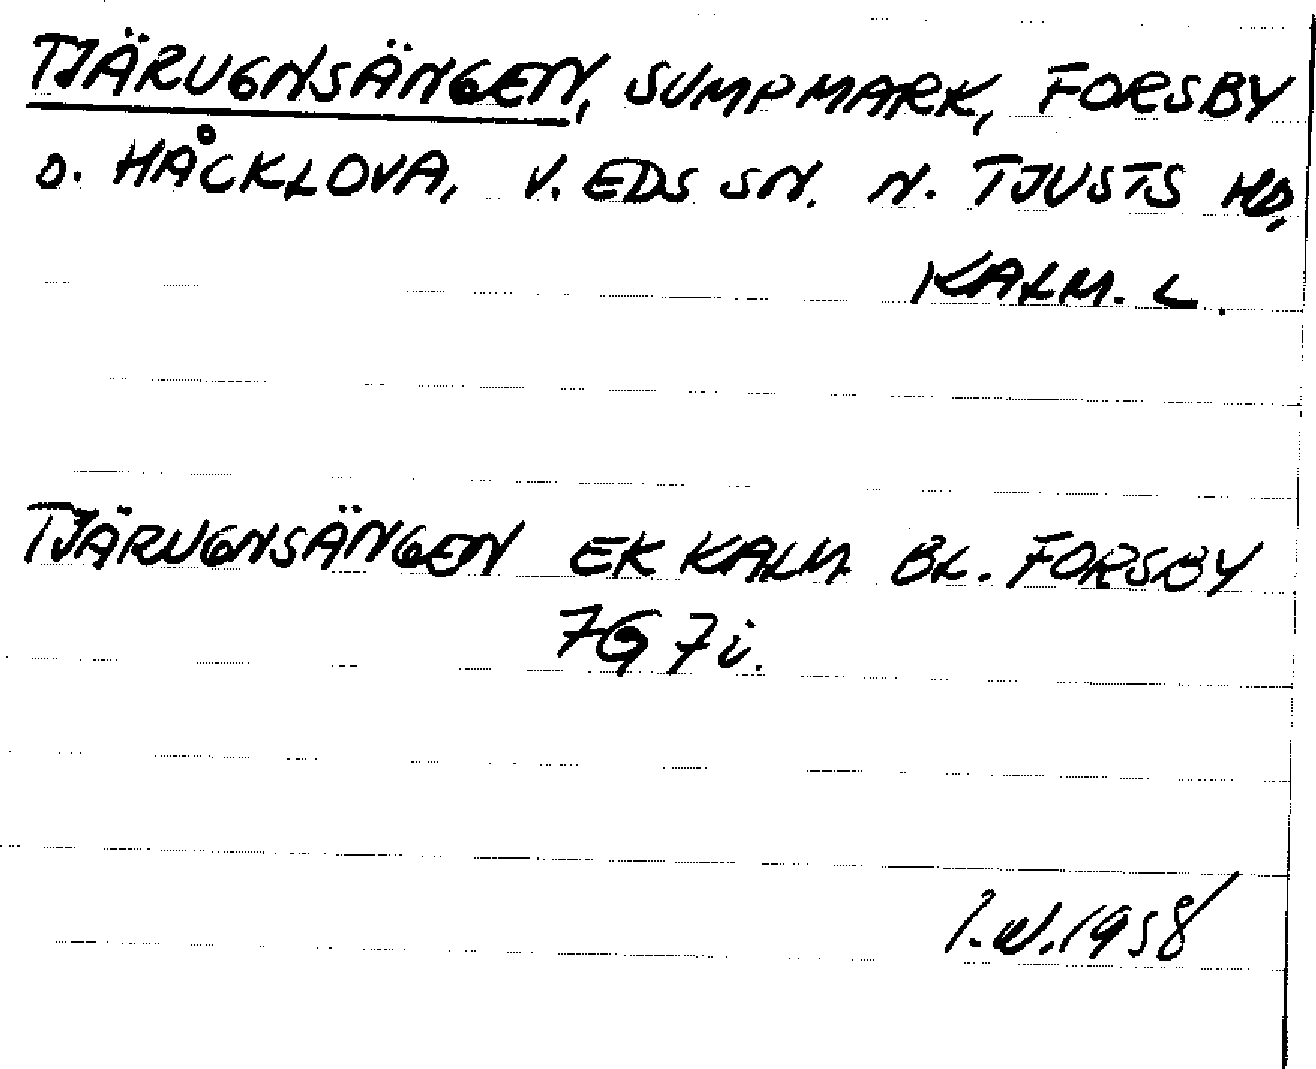 TJÄRUGNSÄNGEN, SUMPMARK, FORSBY
O. HÅCKLOVA, V. EDS SN. N. TJUSTS HD,
KALM. L.
TJÄRUGNSÄNGEN EK KALM. BL. FORSBY
7G 7i.
I.W.1958